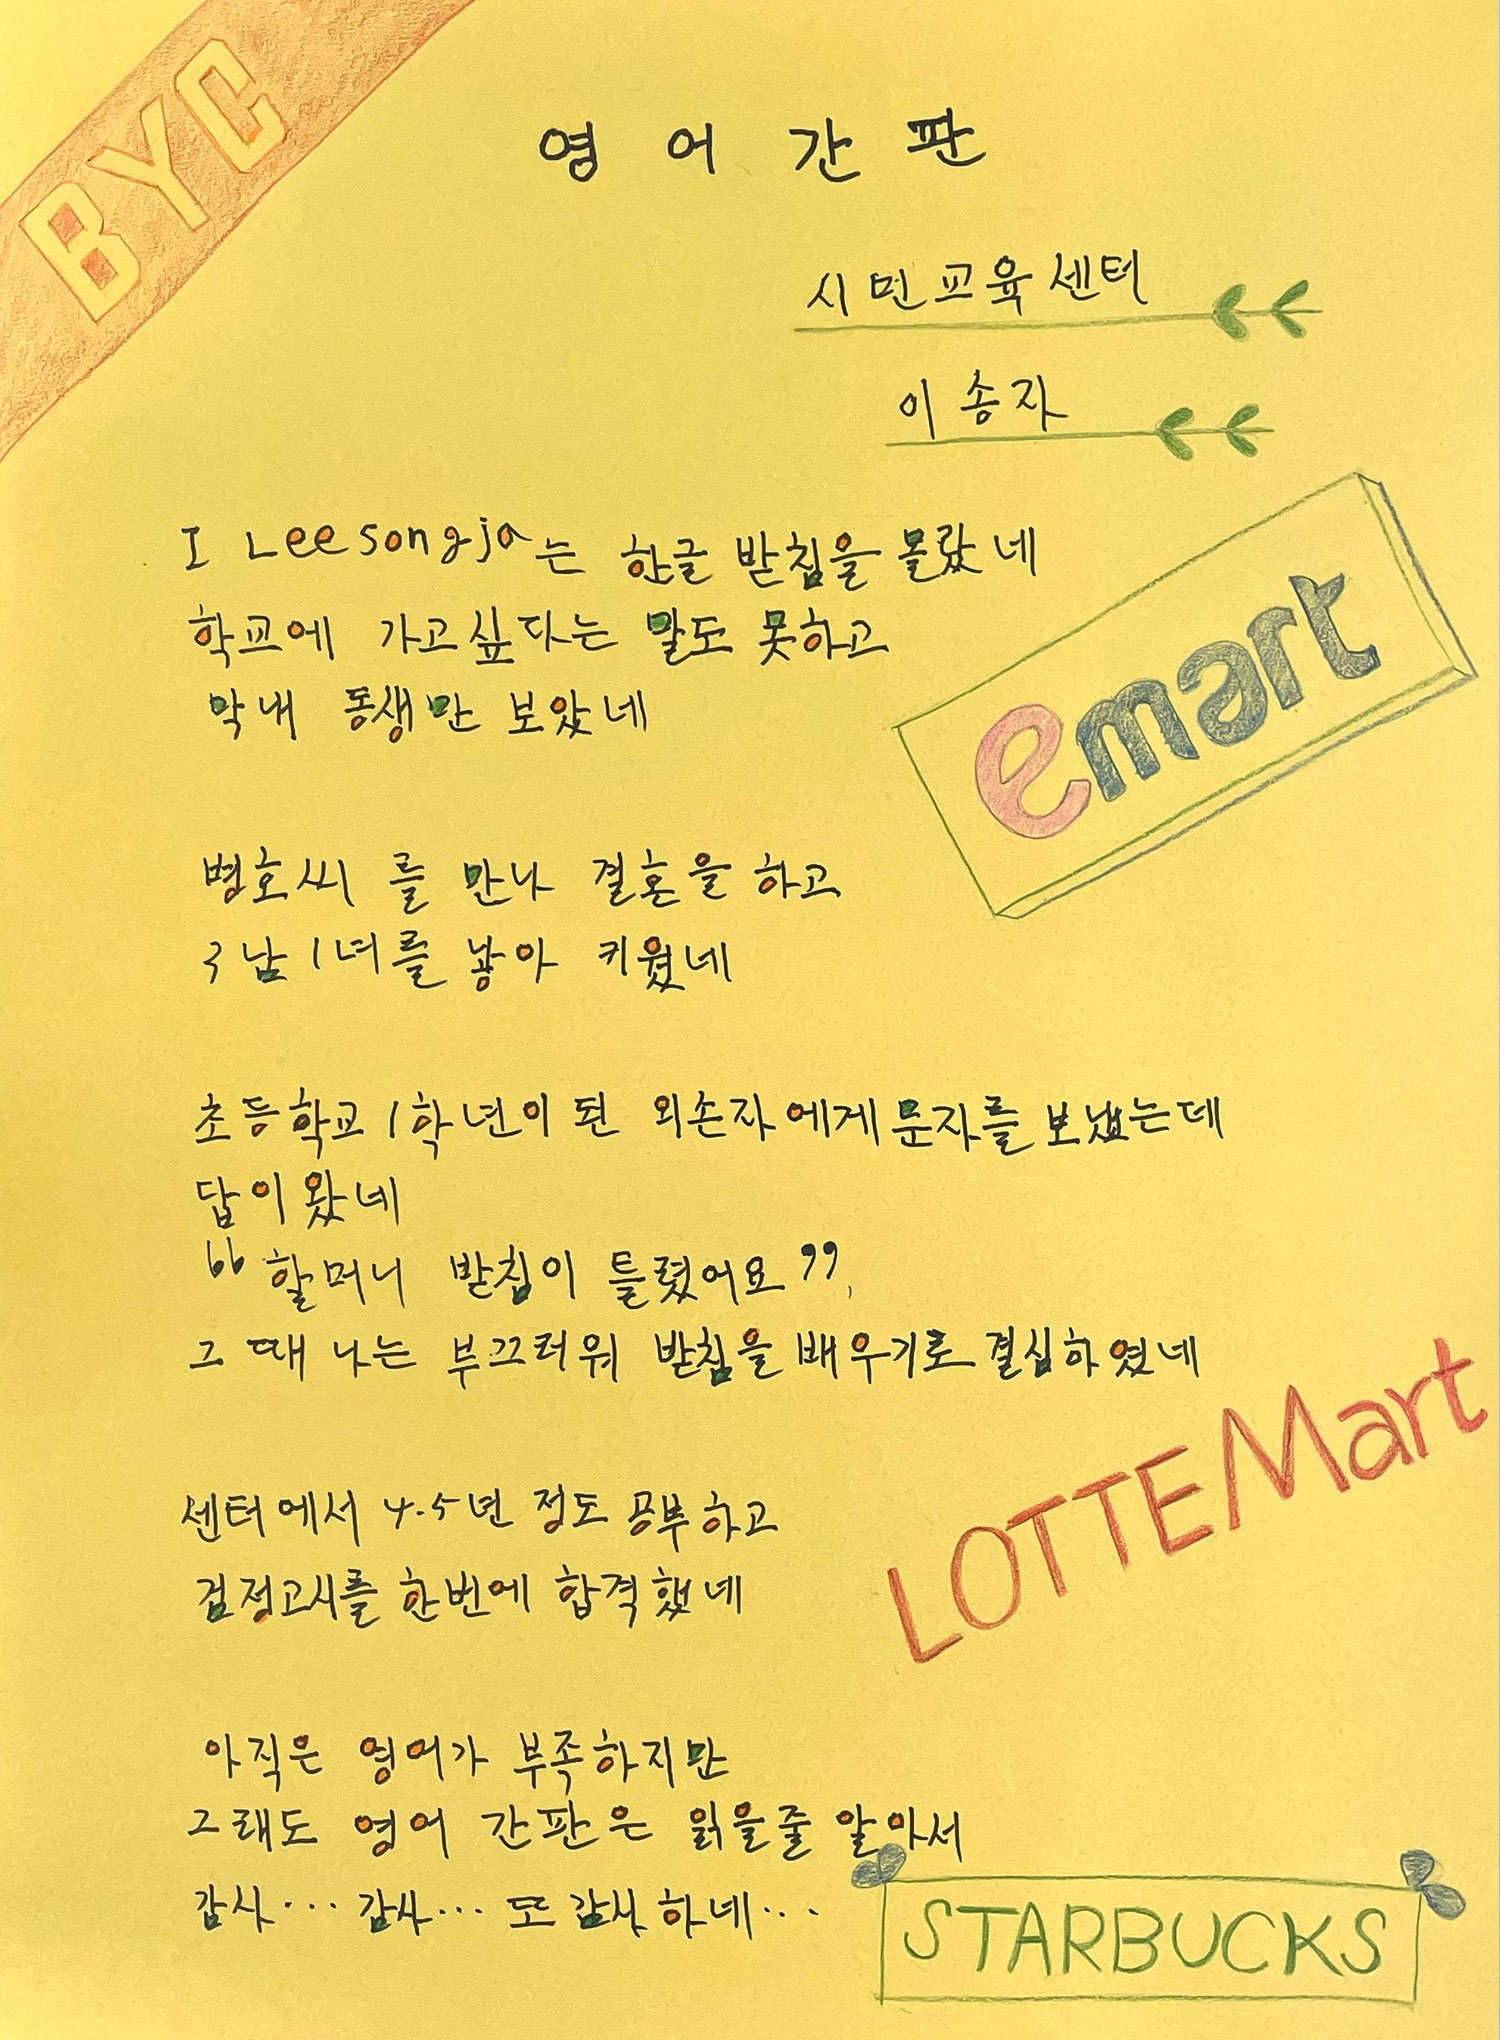 BYC
영어간판
시민교육센터
이송자
I Leesongja는 한글 받침을 몰랐네
학교에 가고싶다는 말도 못하고
막내 동생만 보았네
emart
병호씨를 만나 결혼을 하고
3남1녀를 낳아 키웠네
초등학교 1학년이 된 외손자에게 문자를 보냈는데
답이 왔네
“할머니 받침이 틀렸어요”,
그 때 나는 부끄러워 받침을 배우기로 결심하였네
LOTTEMart
센터에서 4.5년 정도 공부하고
검정고시를 한번에 합격했네
아직은 영어가 부족하지만
그래도 영어 간판은 읽을줄 알아서
감사... 감사... 또 감사하네...
STARBUCKS